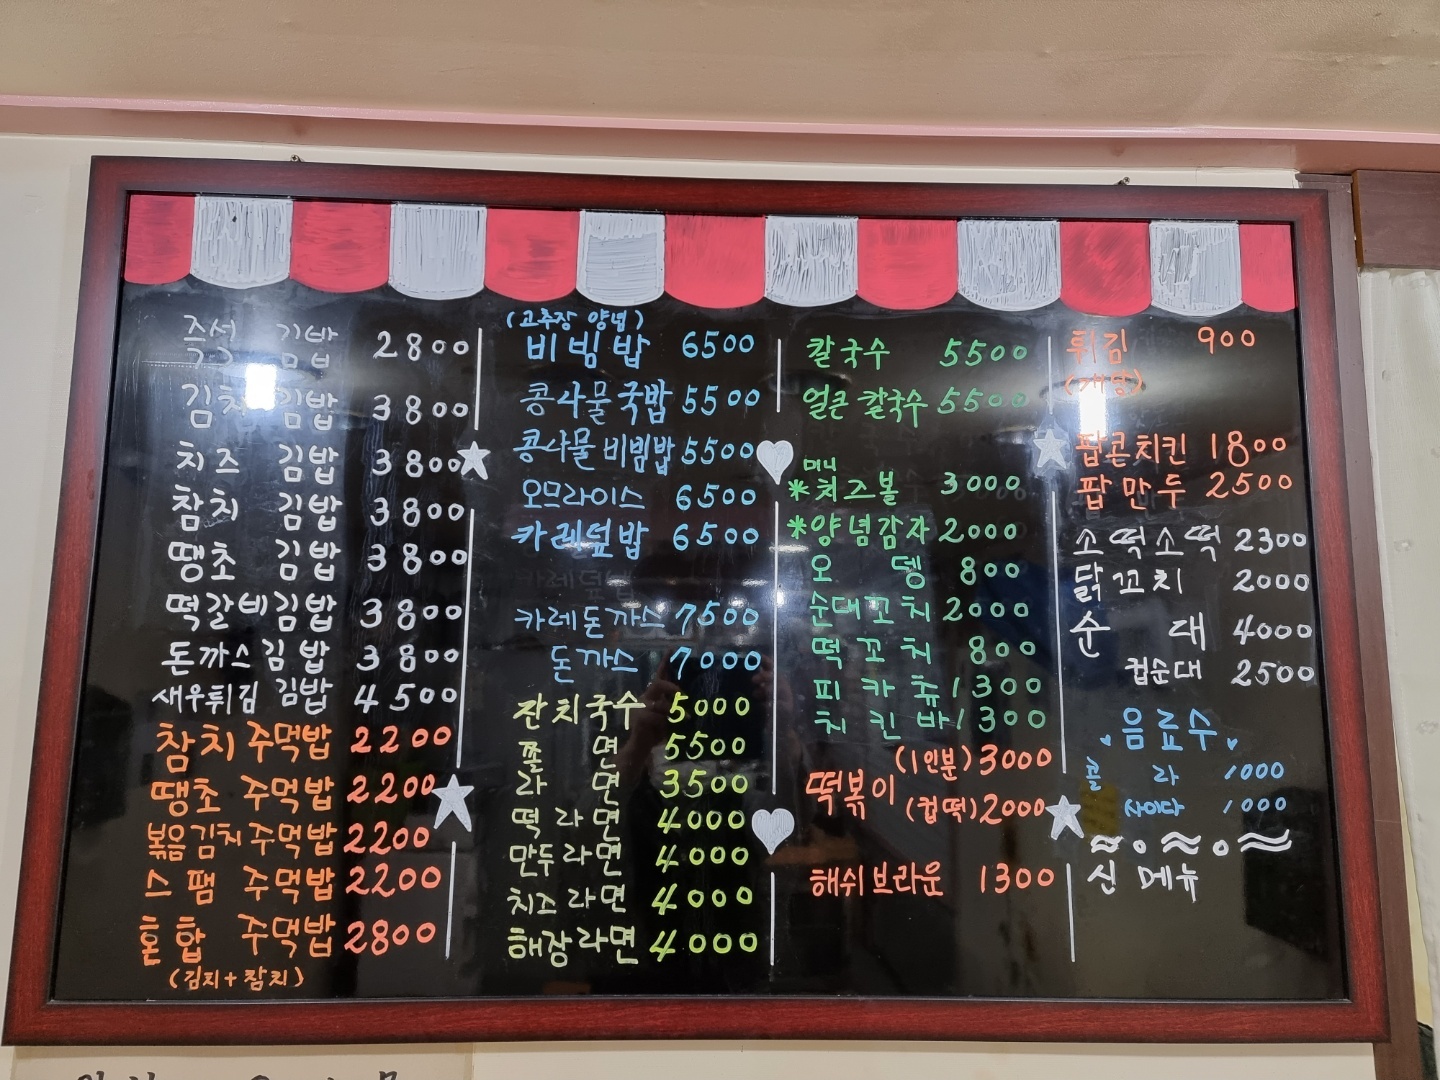 즉석 김밥 2800
김치 김밥 3800
치즈 김밥 3800
참치 김밥 3800
땡초 김밥 3800
떡갈비김밥 3800
돈까스김밥 3800
새우튀김 김밥 4500
참치 주먹밥 2200
땡초 주먹밥 2200
볶음김치주먹밥 2200
스팸 주먹밥 2200
혼합 주먹밥 2800
(김치+참치)
(고추장 양념)
비빔밥 6500
콩나물국밥 5500
콩나물비빔밥 5500
오므라이스 6500
카레덮밥 6500
카레돈까스 7500
돈까스 7000
잔치국수 5000
쫄면 5500
라면 3500
떡라면 4000
만두라면 4000
치즈라면 4000
해장라면 4000
칼국수 5500
얼큰 칼국수 5500
미니
*치즈볼 3000
*양념감자 2000
오뎅 800
순대꼬치 2000
떡꼬치 800
피카츄 1300
치킨바 1300
떡볶이 (1인분) 3000
(컵떡) 2000
해쉬브라운 1300
튀김 900
(개당)
팝콘치킨 1800
팝만두 2500
소떡소떡 2300
닭꼬치 2000
순대 4000
컵순대 2500
음료수
콜라 1000
사이다 1000
신메뉴